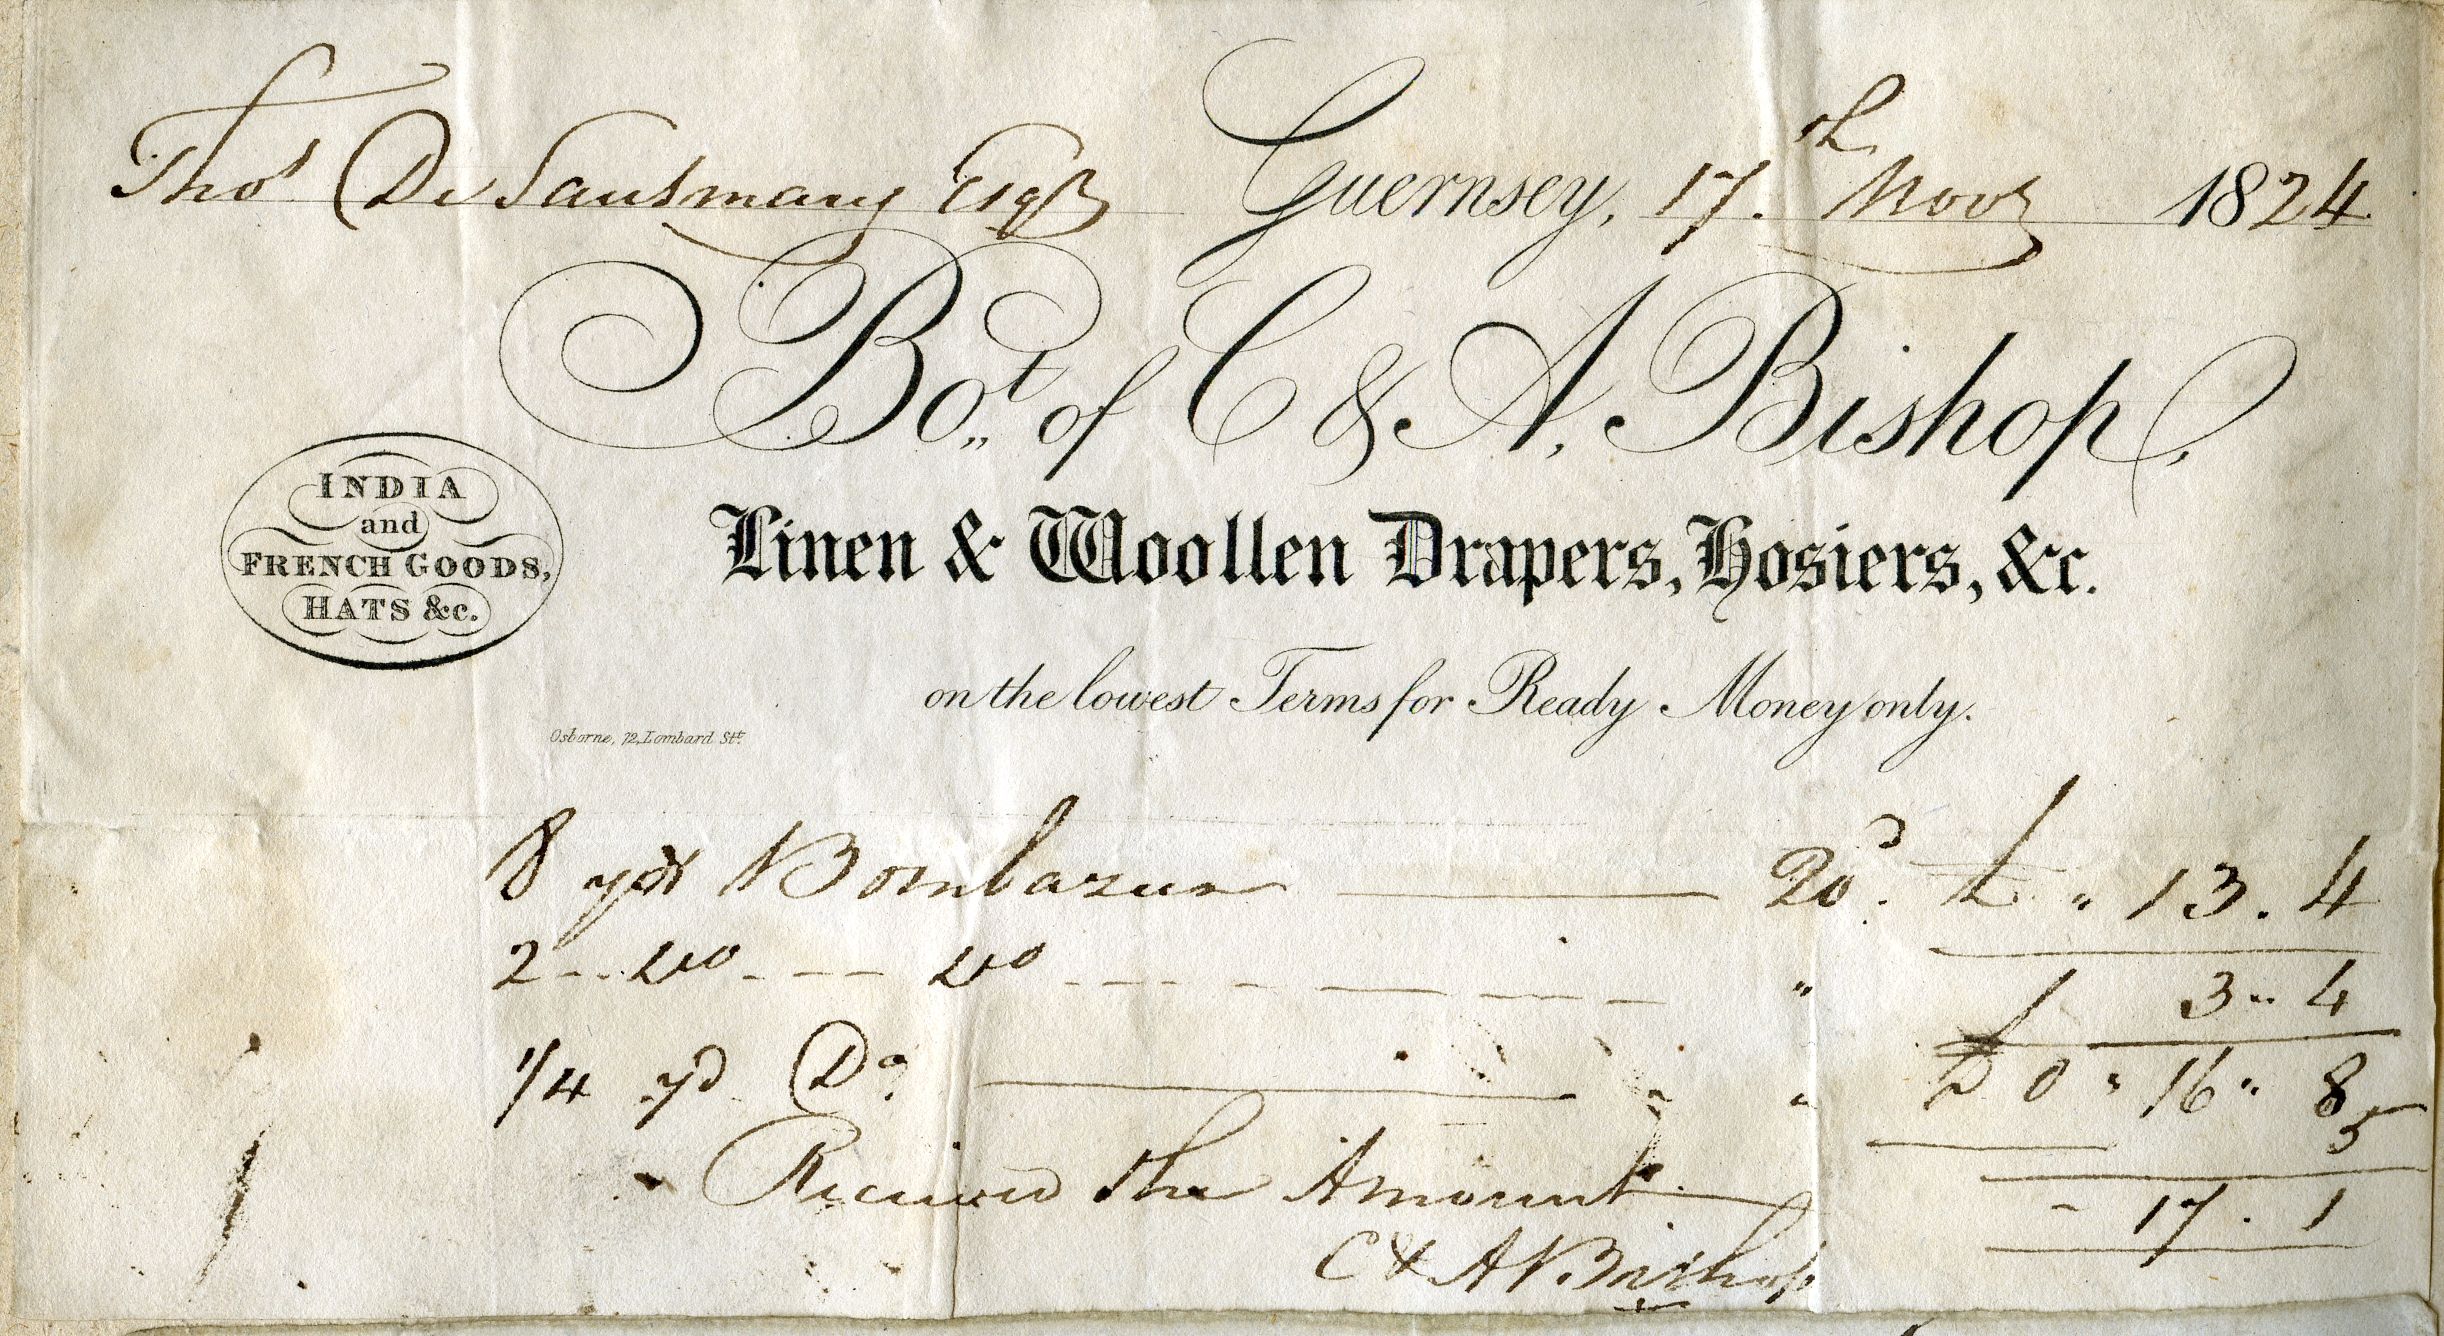 Thos De Sausmarez Esqr Guernsey, 17.th Novr 1824
Bot. of C & A. Bishop,
INDIA
and
FRENCH GOODS,
HATS &c.
Linen & Woollen Drapers, Hosiers, &c.
on the lowest Terms for Ready Money only.
Osborne, 72, Lombard Stt.
8 yds Bombazeen 20d. £ " 13. 4
2 - - do - - - do - - - " 3 " 4
£ 0 " 16 " 8
1/4 yd Do. " " 5
Received the Amount - 17. 1
C & A Bishop